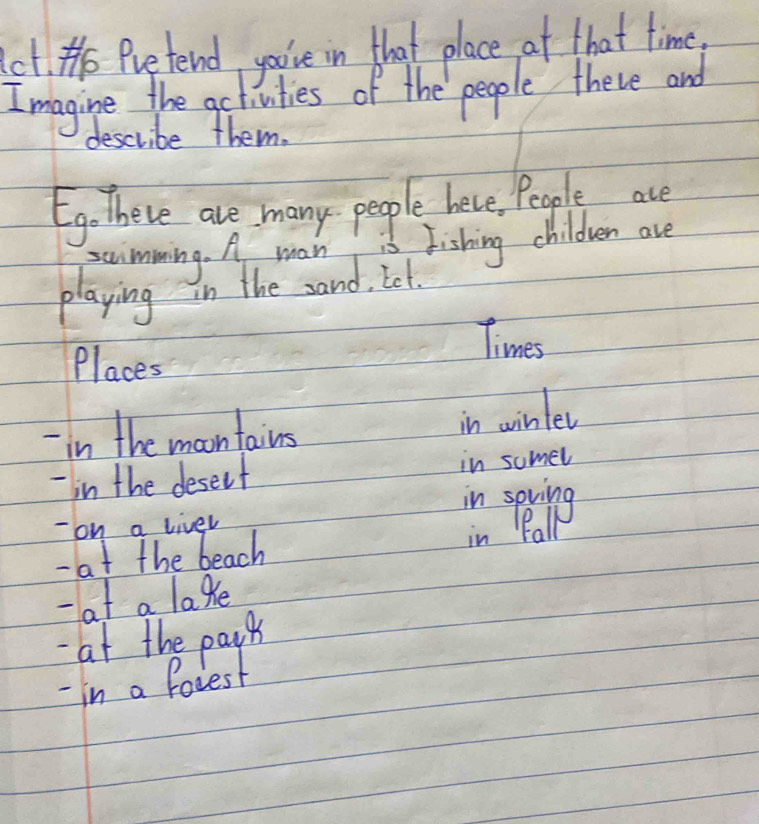 Act. #6 Pretend you're in that place at that time.
Imagine the activities of the people there and
describe them.
Eg. There are many people here. People are
swimming. A man is fishing children are
playing in the sand. Ect.
Places Times
-in the mountains in winter
-in the desert in sumer
-on a river in spring
-at the beach in Fall
-at a lake
-at the park
-in a forest